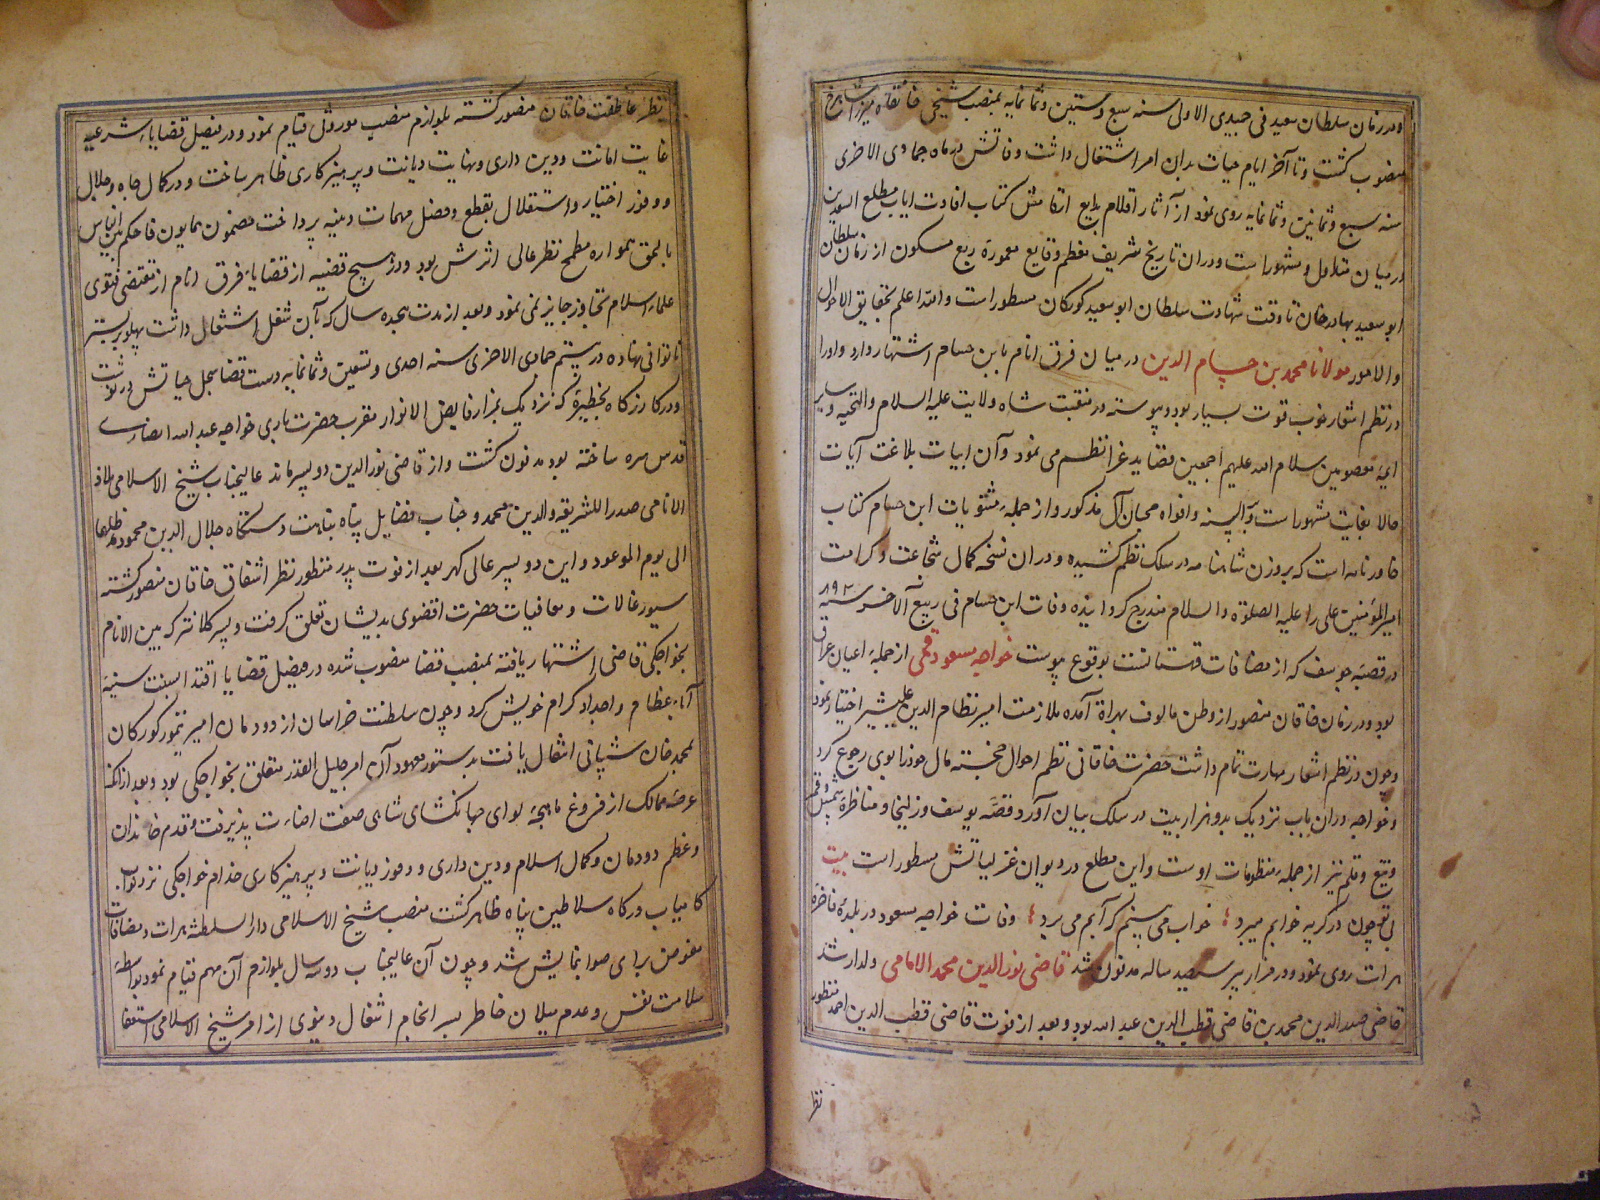 و در زمان سلطان سعید فی جمیدی الاولی سنه سبع و ستین و ثمانمایه بمنصب شیخی خانقاه میرزا شاهرخ
منصوب گشت و تا آخر ایام حیات بدان امر اشتغال داشت وفاتش در ماه جمادی الاخری
سنه سبع و ثمانین و ثمانمایه روی نمود از آثار اقلام بدایع ارقامش کتاب افادت ایاب مطلع السعدین
در میان متداول و مشهور است و در ان تاریخ شریف معظم وقایع معموره ربع مسکون از زمان سلطان
ابو سعید بهادر خان تا وقت شهادت سلطان ابو سعید کورکان مسطور است والله اعلم بحقایق الاحوال
والامور مولانا محمد بن حسام الدین در میان فرق انام بابن حسام اشتهار دارد و او را
در نظم اشعار خوب قوت بسیار بود و پیوسته در منقبت شاه ولایت علیه السلام والتحیه و سایر
ایمه معصومین سلام الله علیهم اجمعین قصاید غرا نظم می نمود و آن ابیات بلاغت آیات
حالا بغایت مشهور است و بر السنه و افواه محبان آل مذکور و از جمله مثنویات ابن حسام کتاب
خاور نامه است که بر وزن شاهنامه در سلک نظم کشیده و در ان نسخه کمال شجاعت و کرامت
امیر المؤمنین علی را علیه الصلوة والسلام مندرج کردانیده وفات ابن حسام فی ربیع الآخر سنه ۸۹۳
در قصبه جوسف که از مضافات قهستانست بوقوع پیوست خواجه مسعود قمی از جمله اعیان عراق
بود و در زمان خاقان منصور از وطن مالوف بهراة آمده ملازمت امیر نظام الدین علیشیر اختیار نمود
و چون در نظم اشعار مهارت تمام داشت حضرت خاقانی نظم احوال خجسته مال خود را بوی رجوع کرد
و خواجه در ان باب نزدیک بدو هزار بیت در سلک بیان آورد و قصه یوسف و زلیخا و مناظره شمس و قمر
و تیغ و قلم نیز از جمله منظومات اوست و این مطلع در دیوان غزلیاتش مسطور است بیت
بی تو چون در کریه خوابم میبرد خواب می بینم که آبم می برد وفات خواجه مسعود در بلده فاخره
هرات روی نمود و در مزار پیر سیصد ساله مدفون شد قاضی نور الدین محمد الامامی ولد ارشد
قاضی صدر الدین محمد بن قاضی قطب الدین عبد الله بود و بعد از فوت قاضی قطب الدین احمد منظور
نظر
نظر عاطفت خاقان منصور کشته بلوازم منصب موروثی قیام نمود و در فیصل قضایاء شرعیه
غایت امانت و دین داری و نهایت دیانت و پرهیزکاری ظاهر ساخت و در کمال جاه و جلال
و وفور اختیار و استقلال بقطع و فصل مهمات دینیه پرداخت مضمون همایون فاحکم بین الناس
بالحق همواره مطمح نظر عالی اثرش بود و در هیچ قضیه از قضایاء فرق انام از مقتضی فتوی
علماء اسلام تجاوز جایز نمی نمود و بعد از مدت هجده سال که بآن شغل اشتغال داشت پهلو بر بستر
ناتوانی نهاده در بیستم جمادی الاخری سنه احدی و تسعین و ثمانمایه دست قضا سجل حیاتش در نوشت
و در کازرکاه بحظیره که نزدیک بمزار فایض الانوار مقرب حضرت باری خواجه عبد الله انصاری
قدس سره ساخته بود مدفون کشت و از قاضی نور الدین دو پسر ماند عالیجناب شیخ الاسلامی ملاذ
الانامی صدرا للشریعه والدین محمد و جناب فضایل پناه نباهت دستکاه جلال الدین محمود مد ظلهما
الی یوم الموعود و این دو پسر عالی کهر بعد از فوت پدر منظور نظر اشفاق خاقان منصور کشته
سیورغالات و معافیات حضرت اقضوی بدیشان تعلق کرفت و پسر کلانتر که بین الانام
بخواجکی قاضی اشتهار یافته بمنصب قضا منصوب شده در فیصل قضایا اقتدا بسنت سنیه
آباء عظام و اجداد کرام خویش کرد و چون سلطنت خراسان از دودمان امیر تیمور کورکان
بمحمد خان شیبانی انتقال یافت بدستور معهود آن امر جلیل القدر متعلق بخواجکی بود و بعد از انکه
عرصه ممالک از فروغ ماهچه لوای جهانکشای شاهی صفت اضاءت پذیرفت و قدم خاندان
و عظم دودمان و کمال اسلام و دین داری و وفور دیانت و پرهیزکاری خدام خواجکی نزد نواب
کامیاب درکاه سلاطین پناه ظاهر کشت منصب شیخ الاسلامی دار السلطنة هرات و مضافات
مفوض برای صوابنمایش شد و چون آن عالیجناب دو سه سال بلوازم آن مهم قیام نمود بواسطه
سلامت نفس و عدم میلان خاطر بسر انجام اشغال دینوی از امر شیخ الاسلامی استعفا